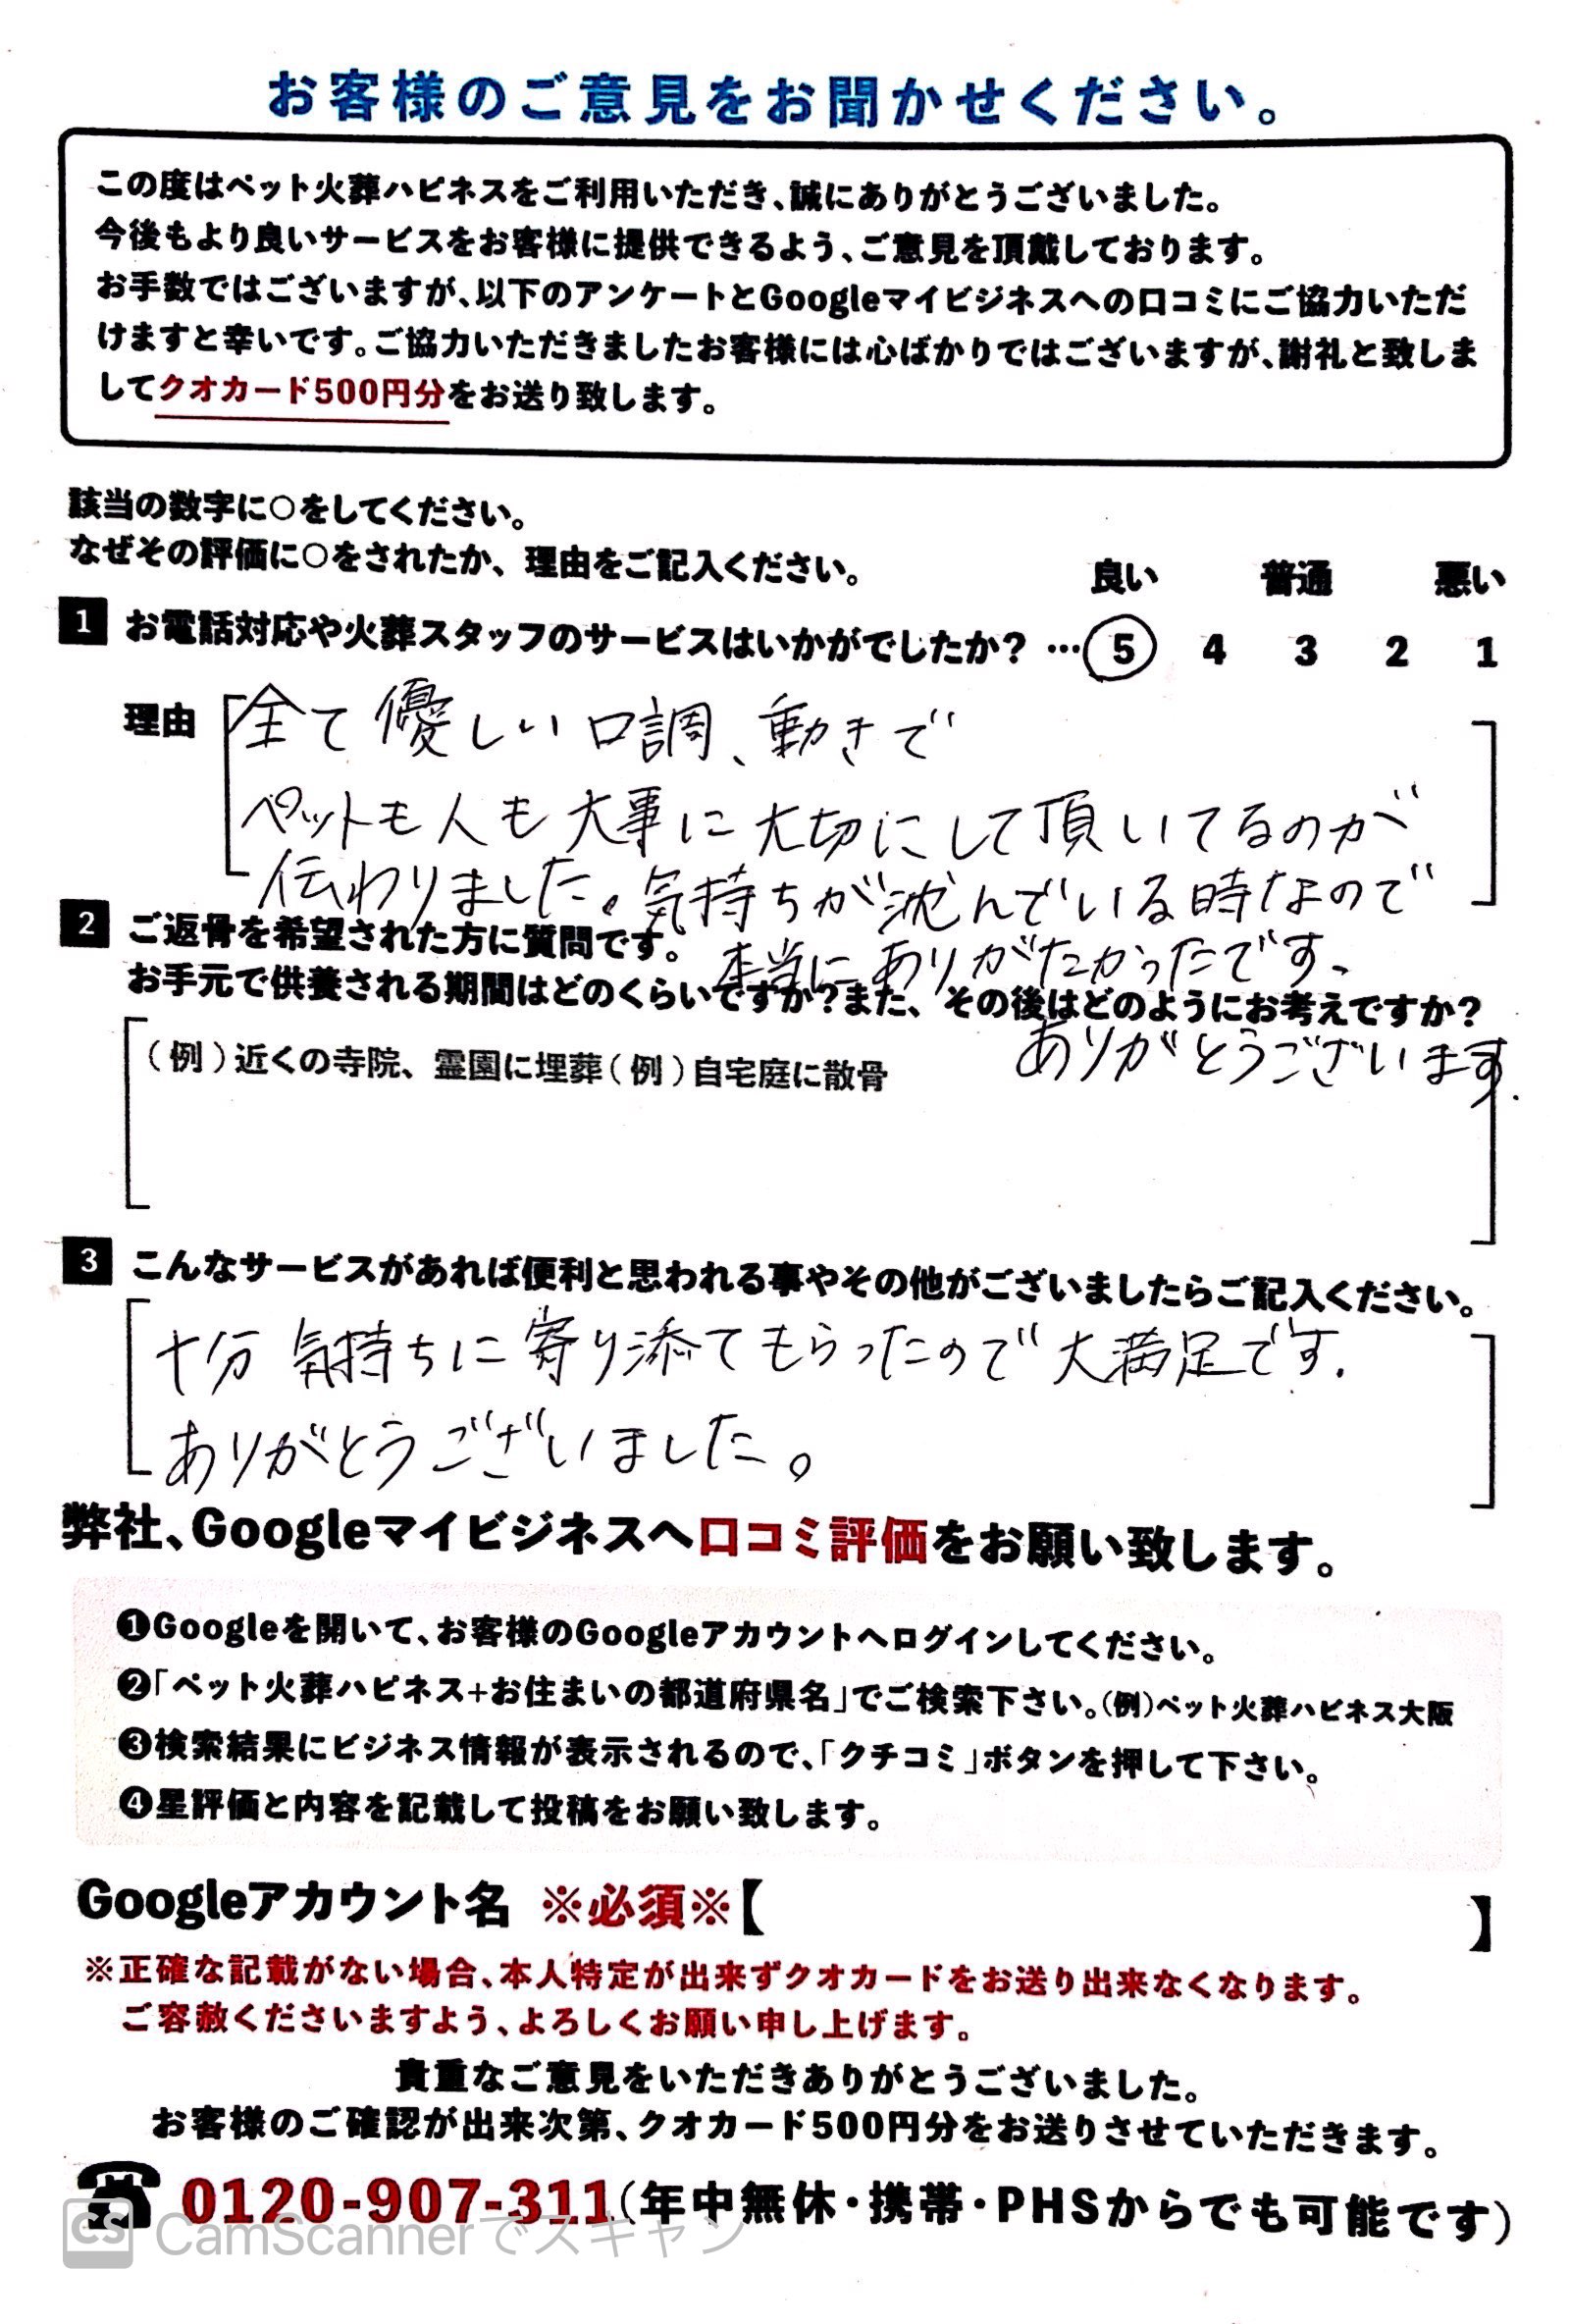 お客様のご意見をお聞かせください。
この度はペット火葬ハピネスをご利用いただき、誠にありがとうございました。
今後もより良いサービスをお客様に提供できるよう、ご意見を頂戴しております。
お手数ではございますが、以下のアンケートとGoogleマイビジネスへの口コミにご協力いただ
けますと幸いです。ご協力いただきましたお客様には心ばかりではございますが、謝礼と致しま
してクオカード500円分をお送り致します。
該当の数字に○をしてください。
なぜその評価に○をされたか、理由をご記入ください。
良い 普通 悪い
1 お電話対応や火葬スタッフのサービスはいかがでしたか? …5 4 3 2 1
理由 全て優しい口調、動きで
ペットも人も大事に大切にして頂いてるのが
伝わりました。気持ちが沈んでいる時なので
本当にありがたかったです、
ありがとうございます.
2 ご返骨を希望された方に質問です。
お手元で供養される期間はどのくらいですか?また、その後はどのようにお考えですか?
(例)近くの寺院、霊園に埋葬(例)自宅庭に散骨
3 こんなサービスがあれば便利と思われる事やその他がございましたらご記入ください。
十分 気持ちに寄り添てもらったので大満足です.
ありがとうございました。
弊社、Googleマイビジネスへ口コミ評価をお願い致します。
❶Googleを開いて、お客様のGoogleアカウントへログインしてください。
❷「ペット火葬ハピネス+お住まいの都道府県名」でご検索下さい。(例)ペット火葬ハピネス大阪
❸検索結果にビジネス情報が表示されるので、「クチコミ」ボタンを押して下さい。
❹星評価と内容を記載して投稿をお願い致します。
Googleアカウント名 ※必須※【 】
※正確な記載がない場合、本人特定が出来ずクオカードをお送り出来なくなります。
ご容赦くださいますよう、よろしくお願い申し上げます。
貴重なご意見をいただきありがとうございました。
お客様のご確認が出来次第、クオカード500円分をお送りさせていただきます。
☎ 0120-907-311(年中無休・携帯・PHSからでも可能です)
CS CamScannerでスキャン